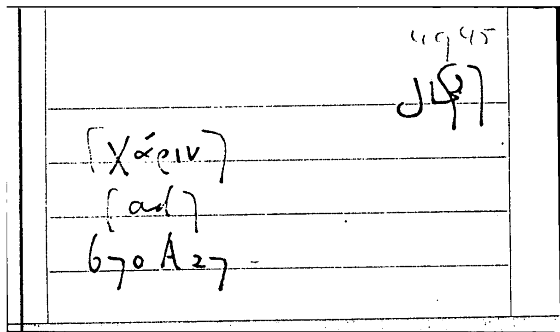 4945
[χάριν]
[ad]
670 A 27